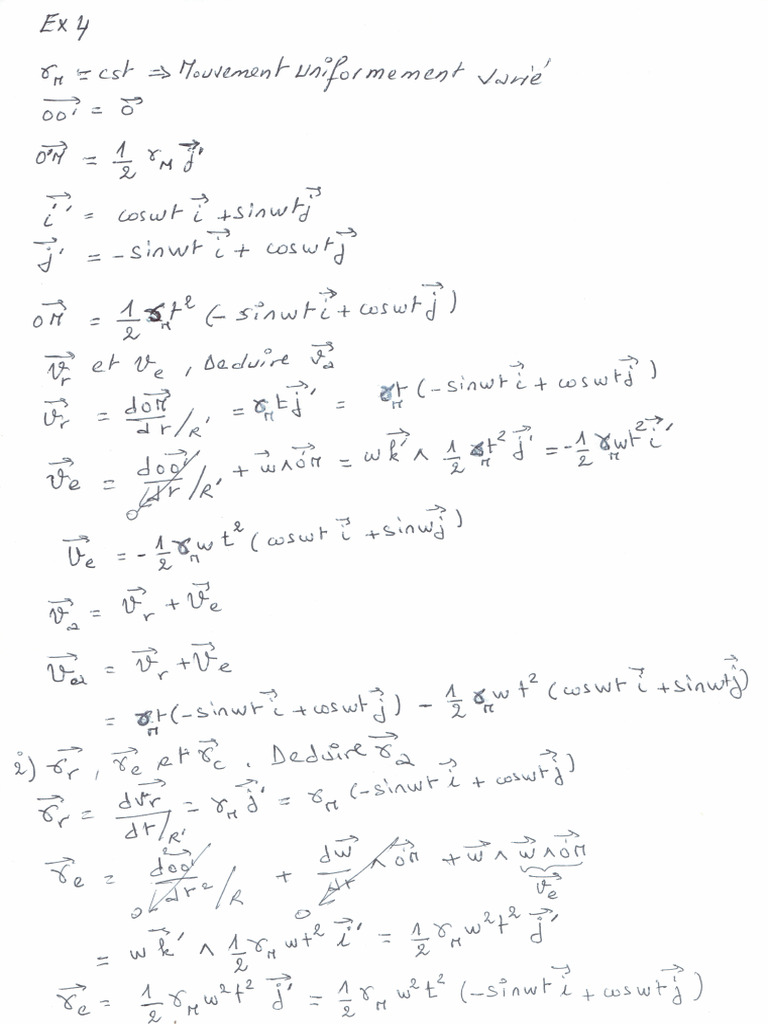 Ex 4
γ_M = cst ⇒ Mouvement uniformement varié
OO'→ = 0→
O'M→ = 1/2 γ_M j'→
i'→ = coswt i→ + sinwt j→
j'→ = -sinwt i→ + coswt j→
OM→ = 1/2 γ_M t² (- sinwt i→ + coswt j→)
V_r→ et V_e, Deduire V_a→
V_r→ = dO'M→/dt /R' = γ_M t j'→ = γ_M t (-sinwt i→ + coswt j→)
V_e→ = dOO'→/dt /R' + w→ ∧ O'M→ = w k'→ ∧ 1/2 γ_M t² j'→ = -1/2 γ_M w t² i'→
V_e→ = -1/2 γ_M w t² (coswt i→ + sinw j→)
V_a→ = V_r→ + V_e→
V_a→ = V_r→ + V_e→
= γ_M t (-sinwt i→ + coswt j→) - 1/2 γ_M w t² (coswt i→ + sinwt j→)
2) γ_r→, γ_e→ et γ_c→. Deduire γ_a→
γ_r→ = dV_r→/dt /R' = γ_M j'→ = γ_M (-sinwt i→ + coswt j→)
γ_e→ = d OO'→/dt² /R + dw→/dt ∧ O'M→ + w→ ∧ w→ ∧ O'M→
0 0 V_e→
= w k'→ ∧ 1/2 γ_M w t² i'→ = 1/2 γ_M w² t² j'→
γ_e→ = 1/2 γ_M w² t² j'→ = 1/2 γ_M w² t² (-sinwt i→ + coswt j→)